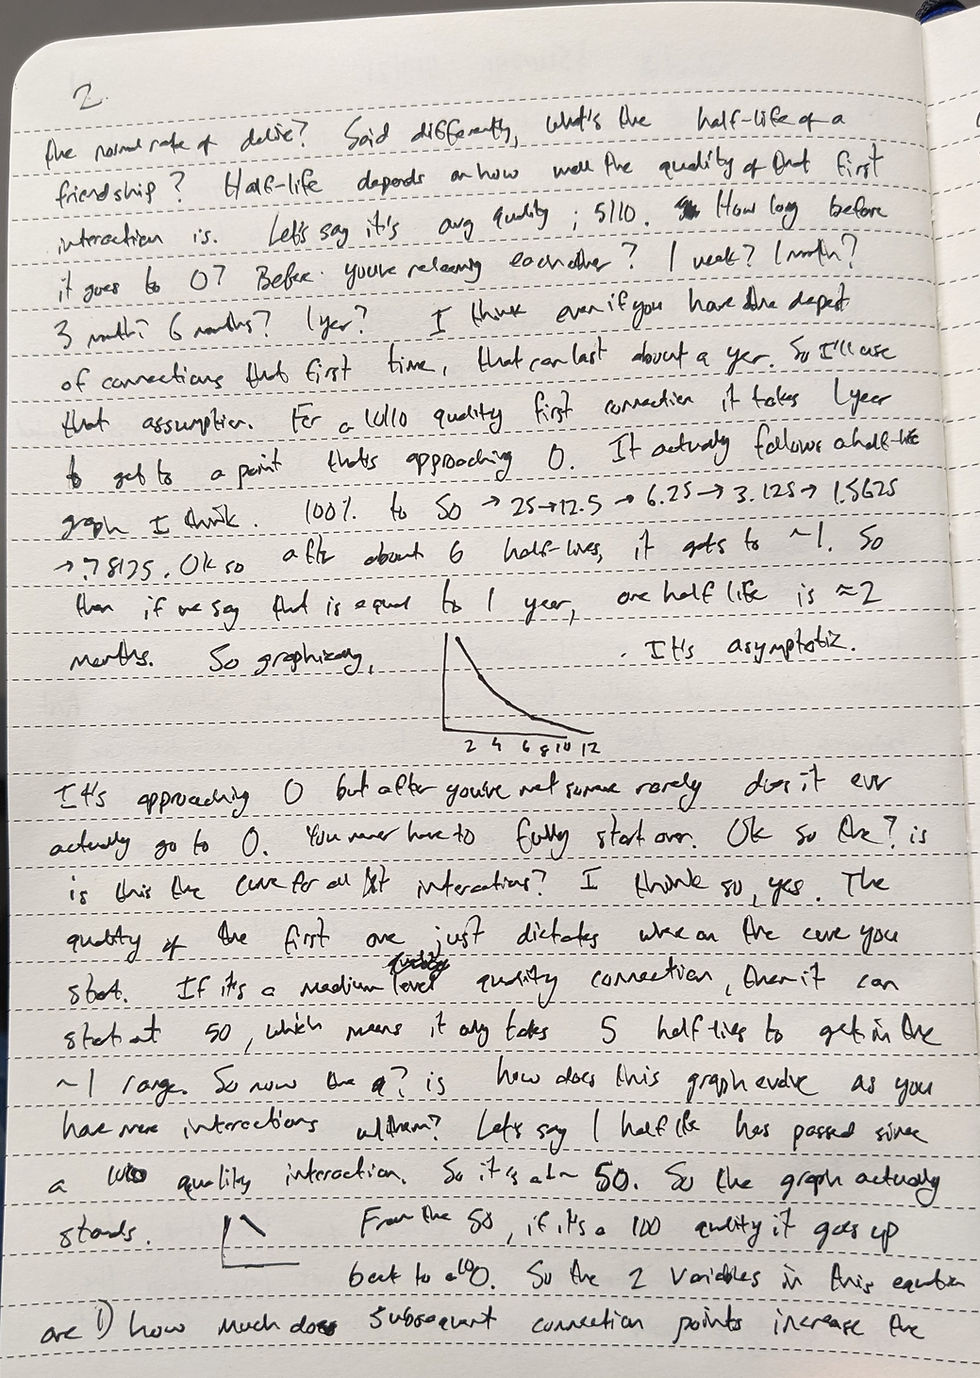 2
the normal rate of decline? Said differently, what's the half-life of a
friendship? Half-life depends on how well the quality of that first
interaction is. Let's say it's avg quality; 5/10. How long before
it goes to 0? Before you're relearning each other? 1 week? 1 month?
3 month? 6 months? 1 year? I think even if you have the depest
of connections that first time, that can last about a year. So I'll use
that assumption. For a 10/10 quality first connection it takes 1 year
to get to a point that's approaching 0. It actually follows a half-life
graph I think. 100% to 50 → 25 → 12.5 → 6.25 → 3.125 → 1.5625
→ .78125. Ok so after about 6 half-lives, it gets to ~1. So
then if we say that is equal to 1 year, one half life is ≈ 2
months. So graphically, . It's asymptotic.
2 4 6 8 10 12
It's approaching 0 but after you've met someone rarely does it ever
actually go to 0. You never have to fully start over. Ok so the ? is
is this the curve for all 1st interactions? I think so, yes. The
quality of the first one just dictates where on the curve you
start. If it's a medium level quality connection, then it can
start at 50, which means it only takes 5 half lives to get in the
~1 range. So now the ? is how does this graph evolve as you
have more interactions w/ them? Let's say 1 half life has passed since
a 100 quality interaction. So it's at ~ 50. So the graph actually
stands. From the 50, if it's a 100 quality it goes up
back to a 100. So the 2 variables in this equation
are 1) how much does subsequent connection points increase the